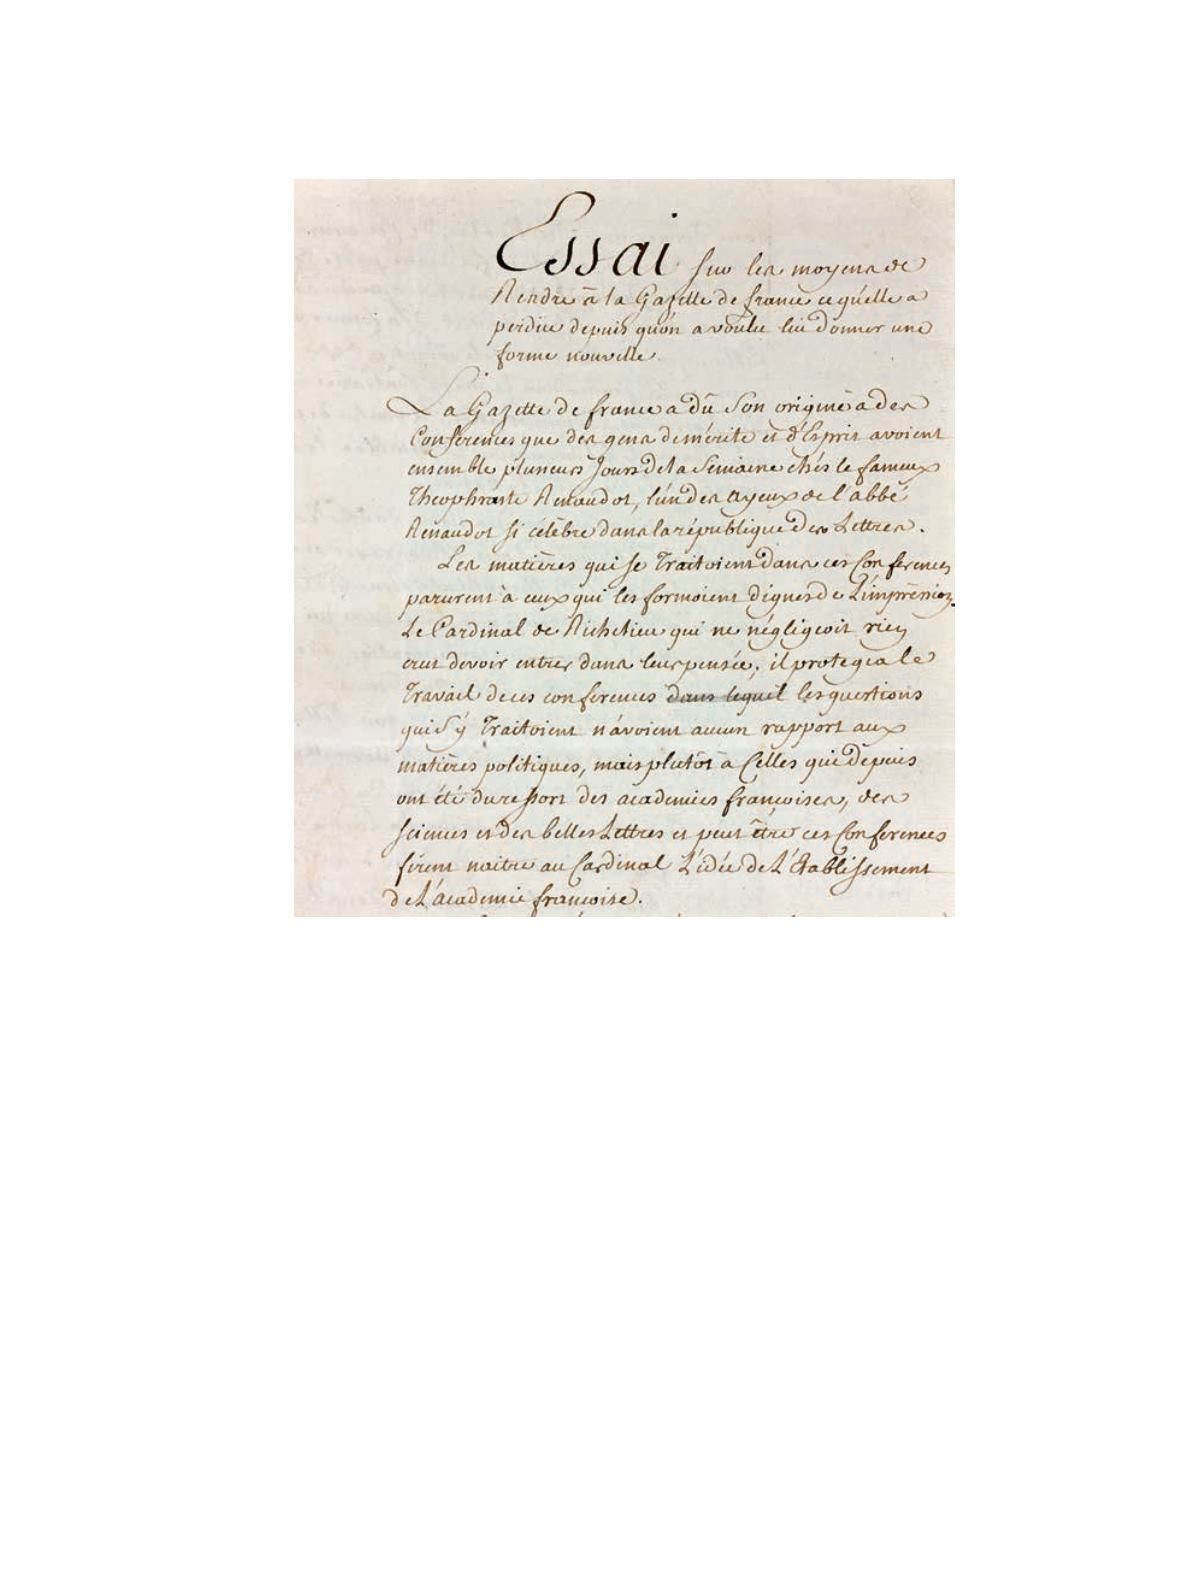 Essai sur les moyens de
Rendre à la Gazette de france ce qu'elle a
perdue depuis qu'on a voulu lui donner une
forme nouvelle.
La Gazette de france a dû Son origine à des
Conférences que des gens de mérite et d'Esprit avoient
ensemble plusieurs Jours de la Semaine chés le fameux
Théophraste Renaudot, l'un des ayeux de l'abbé
Renaudot si célèbre dans la république des Lettres.
Les matières qui se Traitoient dans ces Conférences
parurent à ceux qui les formoient dignes de L'impression.
Le Cardinal de Richelieu qui ne négligeoit rien
crut devoir entrer dans leur pensée; il protegea le
Travail de ces conférences dans lequel les questions
qui S'y Traitoient n'avoient aucun rapport aux
matières politiques, mais plutôt à Celles qui depuis
ont été du ressort des academies françoises, des
sciences et des belles Lettres et peut être ces Conferences
firent naitre au Cardinal L'idée de L'Etablissement
de L'academie françoise.